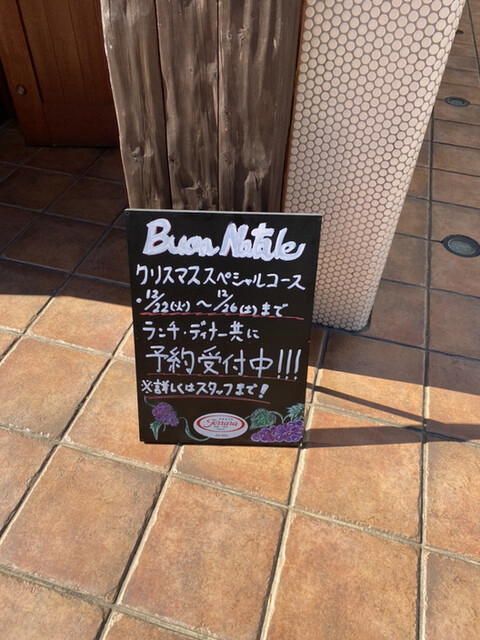 Buon Natale
クリスマススペシャルコース
・12/22(火)～12/26(土)まで
ランチ・ディナー共に
予約受付中!!!
※詳しくはスタッフまで!
Ferrara